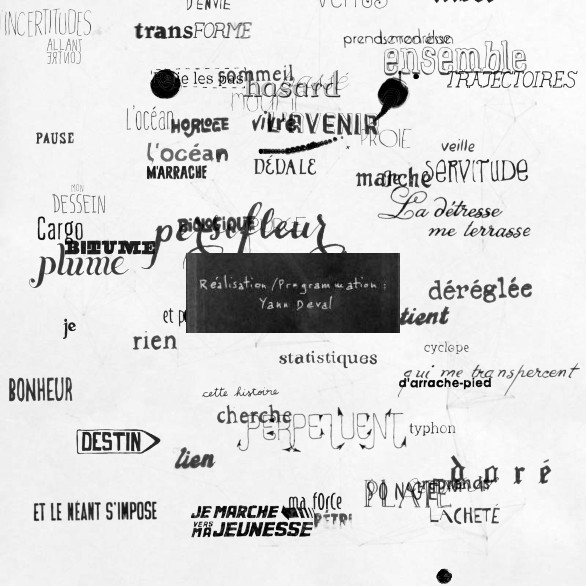 D'ENVIE
INCERTITUDES
ALLANT
CONTRE
transFORME
prends
ensemble
TRAJECTOIRES
sommeil
hasard
les pas
L'océan
HORLOGE
vivre
L'AVENIR
PROIE
PAUSE
veille
l'océan
M'ARRACHE
DÉDALE
marche
SERVITUDE
MON
DESSEIN
La détresse
me terrasse
Cargo
BIOLOGIQUE
persifleur
BITUME
plume
Réalisation/Programmation :
Yann Deval
déréglée
tient
je
et p
rien
cyclope
statistiques
qui me transpercent
d'arrache-pied
BONHEUR
cette histoire
cherche
PERPETUENT
typhon
DESTIN
lien
doré
PLAGE
ma force
ET LE NÉANT S'IMPOSE
JE MARCHE
VERS
MA JEUNESSE
PÉTRI
LACHETÉ